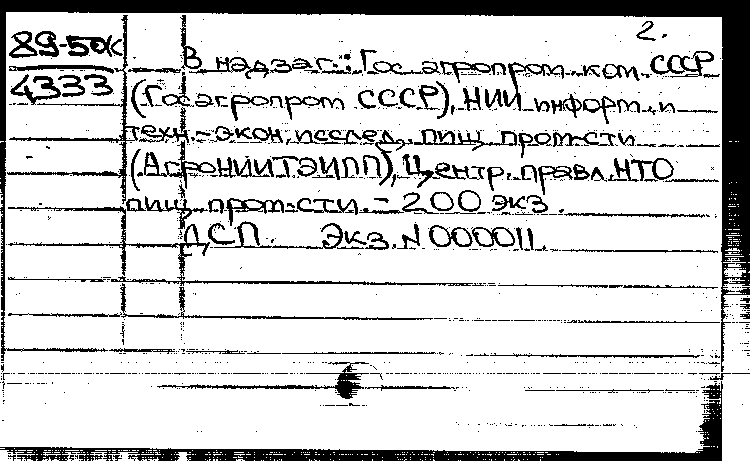 2.
89-5ож
4333
В надзаг.: Гос. агропром. ком. СССР
(Госагропром СССР), НИИ информ. и
техн.-экон. исслед. пищ. пром-сти
(АгроНИИТЭИПП), Центр. правл. НТО
пищ. пром-сти. - 200 экз.
ДСП. Экз. N 000011.